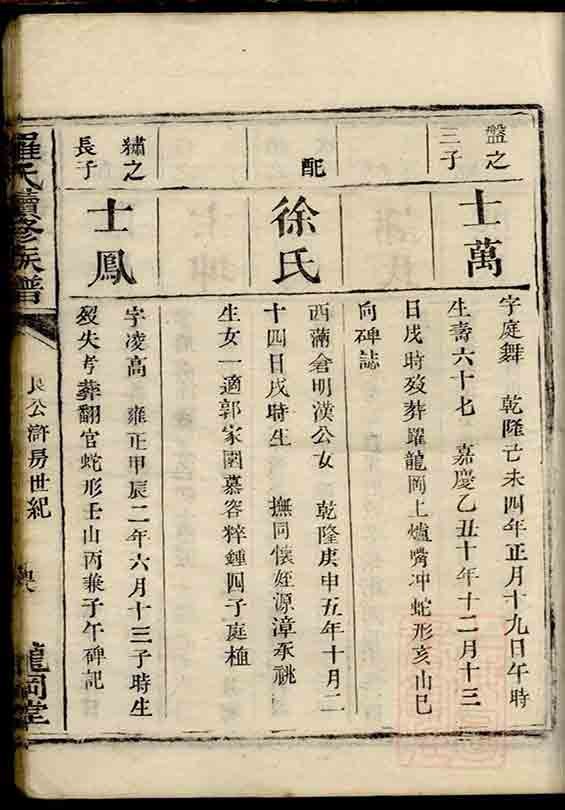 盤之
三子
士萬
字庭舞 乾隆己未四年正月十九日午時
生壽六十七 嘉慶乙丑十年十二月十三
日戌時歿葬躍龍岡上爐嘴冲蛇形亥山巳
向碑誌
配
徐氏
西滿倉明漢公女 乾隆庚申五年十月二
十四日戌時生 撫同懷姪源漳承祧
生女一適郭家園慕容粹鍾四子庭植
繡之
長子
士鳳
字凌高 雍正甲辰二年六月十三子時生
歿失考葬翻官蛇形壬山丙兼子午碑記
羅氏續修族譜
公滸房世紀